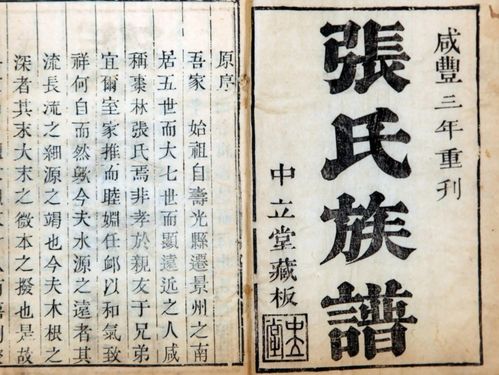 咸豐三年重刊
張氏族譜
中立堂藏板
中立堂
原序
吾家　始祖自壽光縣遷景州之南
居五世而大七世而顯遠近之人咸
稱棗林張氏焉非孝於親友于兄弟
宜爾室家推而睦婣任卹以和氣致
祥何自而然歟今夫水源之遠者其
流長流之細源之竭也今夫木根之
深者其末大末之微本之撥也是故